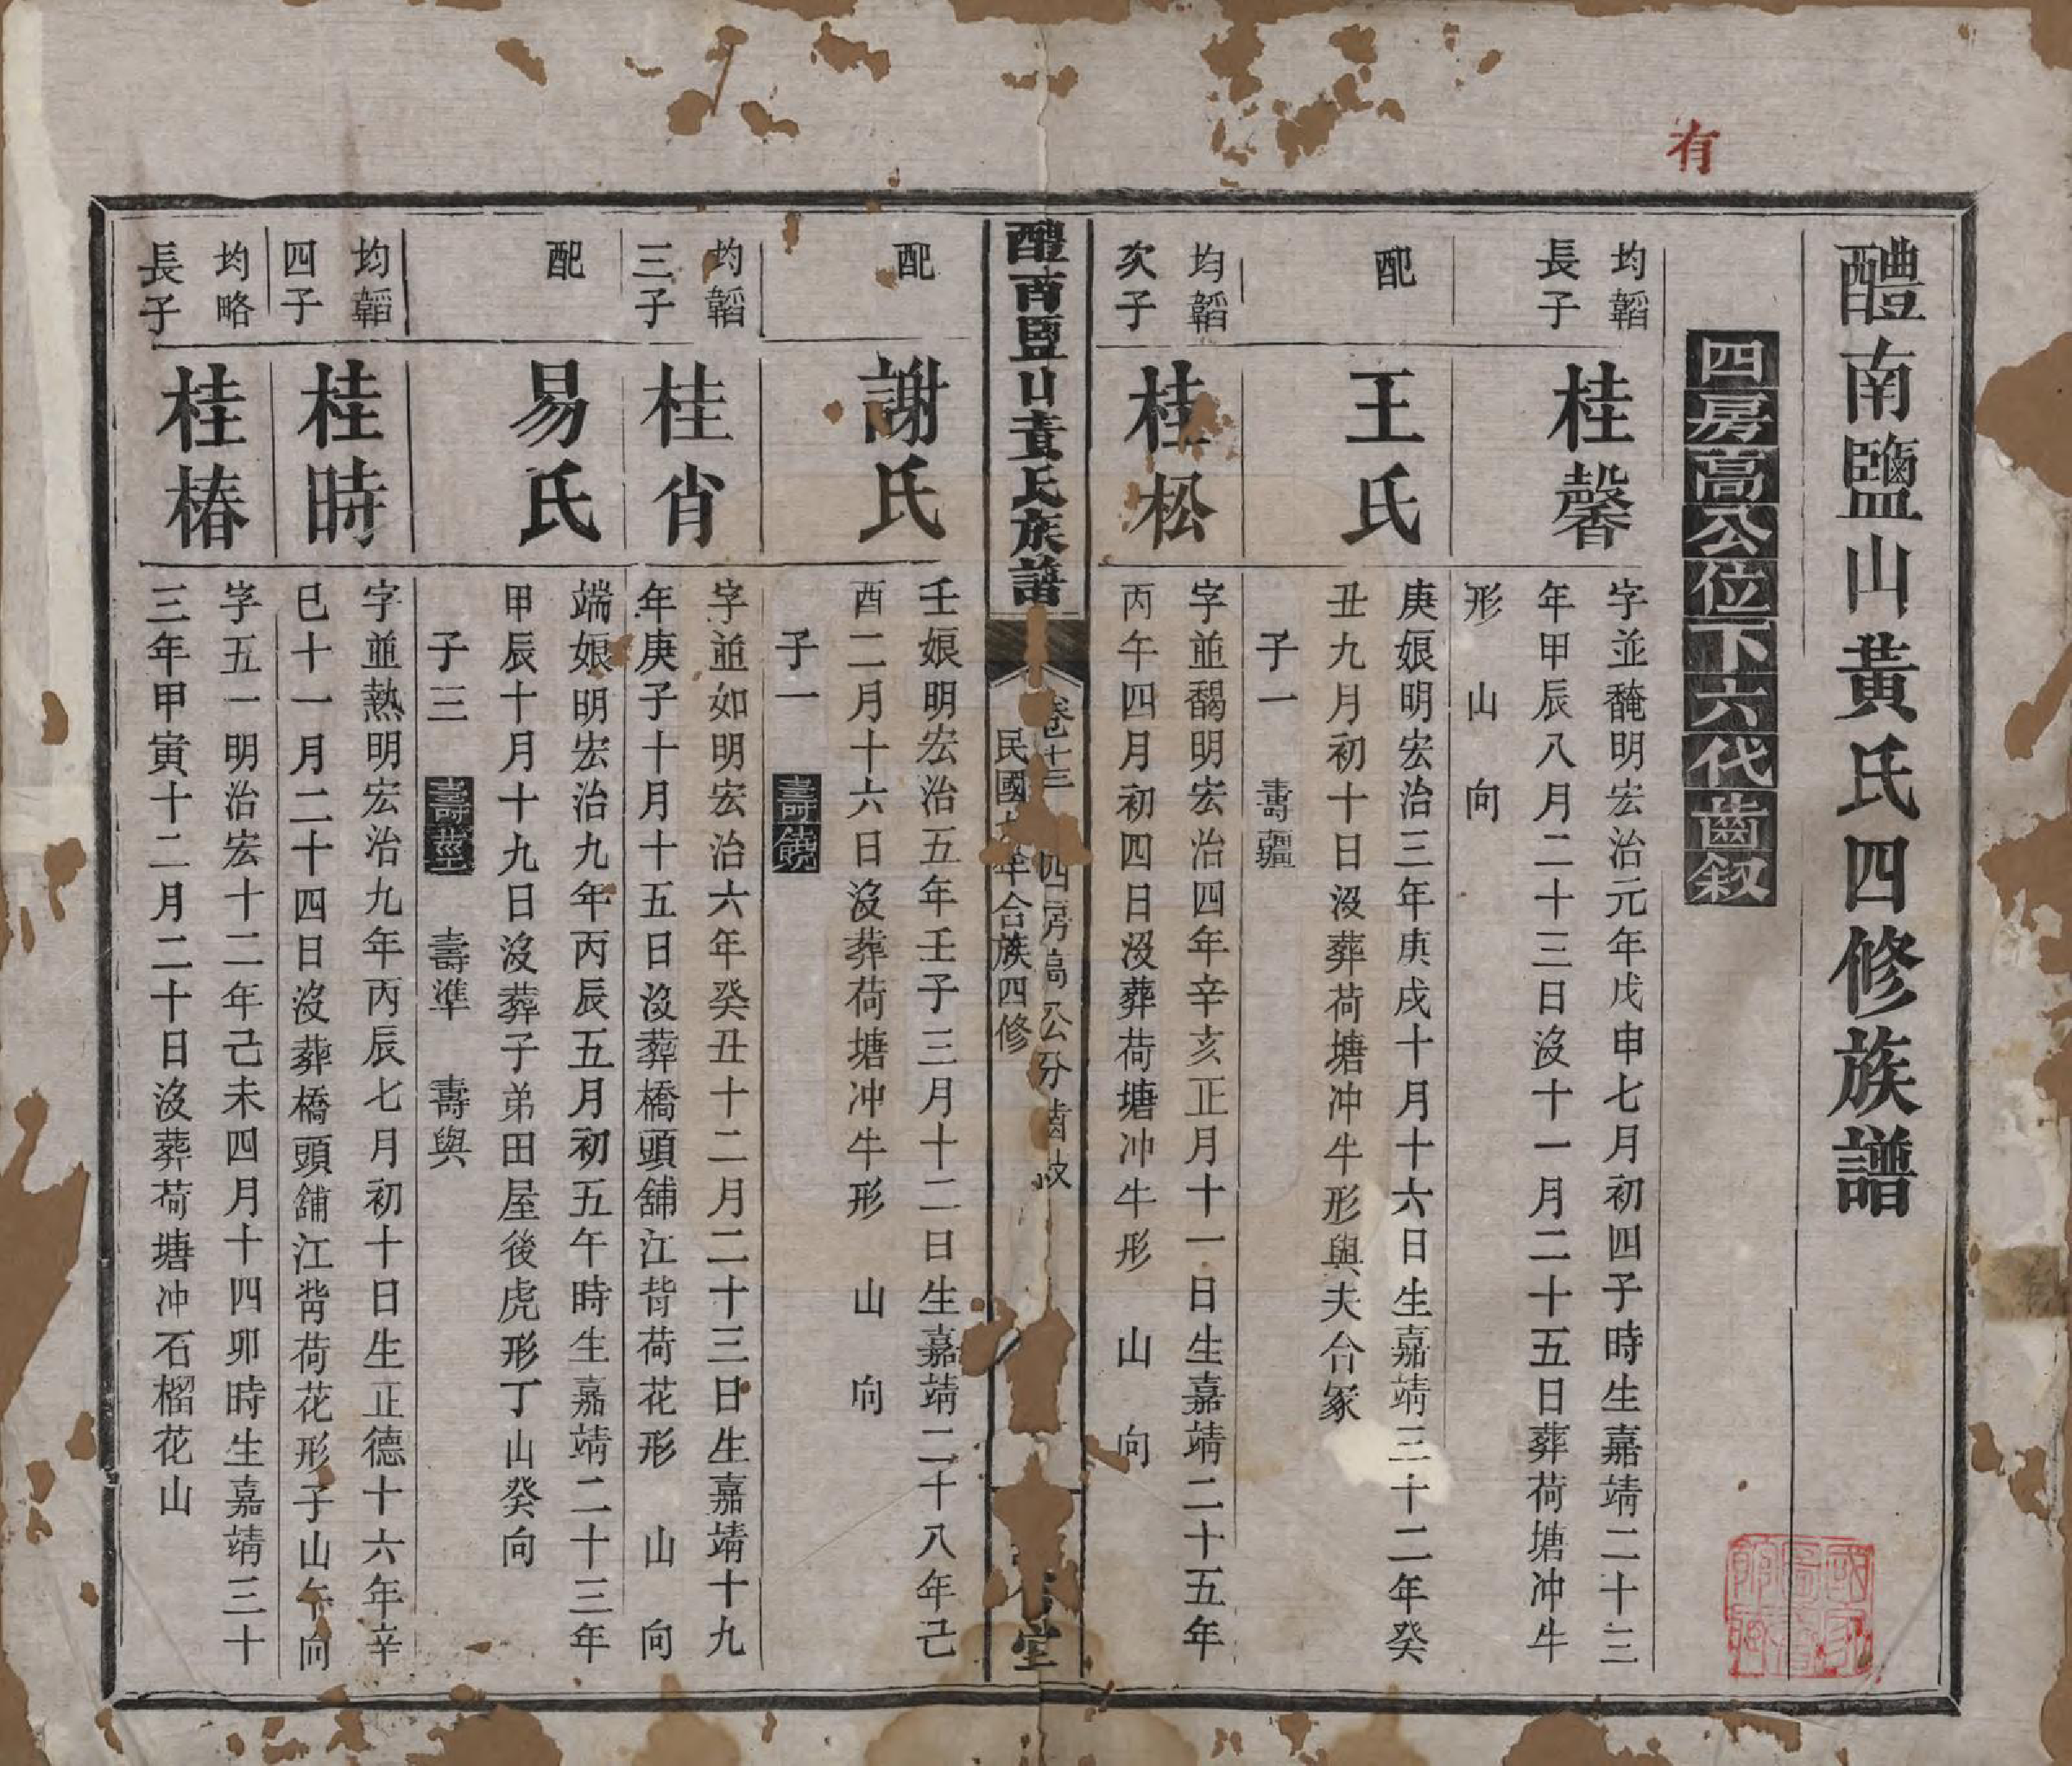 有
醴南鹽山黃氏四修族譜
四房高公位下六代齒叙
均韜
長子
桂馨
字並馣明宏治元年戊申七月初四子時生嘉靖二十三
年甲辰八月二十三日沒十一月二十五日葬荷塘冲牛
形 山 向
配
王氏
庚娘明宏治三年庚戌十月十六日生嘉靖三十二年癸
丑九月初十日沒葬荷塘冲牛形與夫合冢
子一 壽疆
均韜
次子
桂松
字並馤明宏治四年辛亥正月十一日生嘉靖二十五年
丙午四月初四日沒葬荷塘冲牛形 山 向
醴南鹽山黃氏族譜
卷十三 四房高公分齒
民國 年合族四修
堂
配
謝氏
壬娘明宏治五年壬子三月十二日生嘉靖二十八年己
酉二月十六日沒葬荷塘冲牛形 山 向
子一 壽饒
均韜
三子
桂肖
字並如明宏治六年癸丑十二月二十三日生嘉靖十九
年庚子十月十五日沒葬橋頭舖江背荷花形 山 向
配
易氏
端娘明宏治九年丙辰五月初五午時生嘉靖二十三年
甲辰十月十九日沒葬子弟田屋後虎形丁山癸向
子三 壽塋 壽準 壽與
均韜
四子
桂時
字並熱明宏治九年丙辰七月初十日生正德十六年辛
巳十一月二十四日沒葬橋頭舖江背荷花形子山午向
均略
長子
桂椿
字五一明治宏十二年己未四月十四卯時生嘉靖三十
三年甲寅十二月二十日沒葬荷塘冲石榴花山